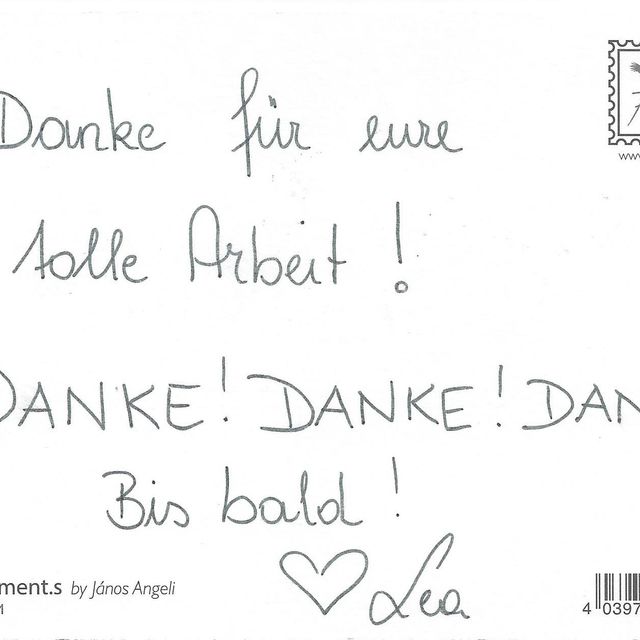 Danke für eure
tolle Arbeit!
DANKE! DANKE! DAN
Bis bald!
♡ Lea
ment.s by János Angeli
4 0397
www